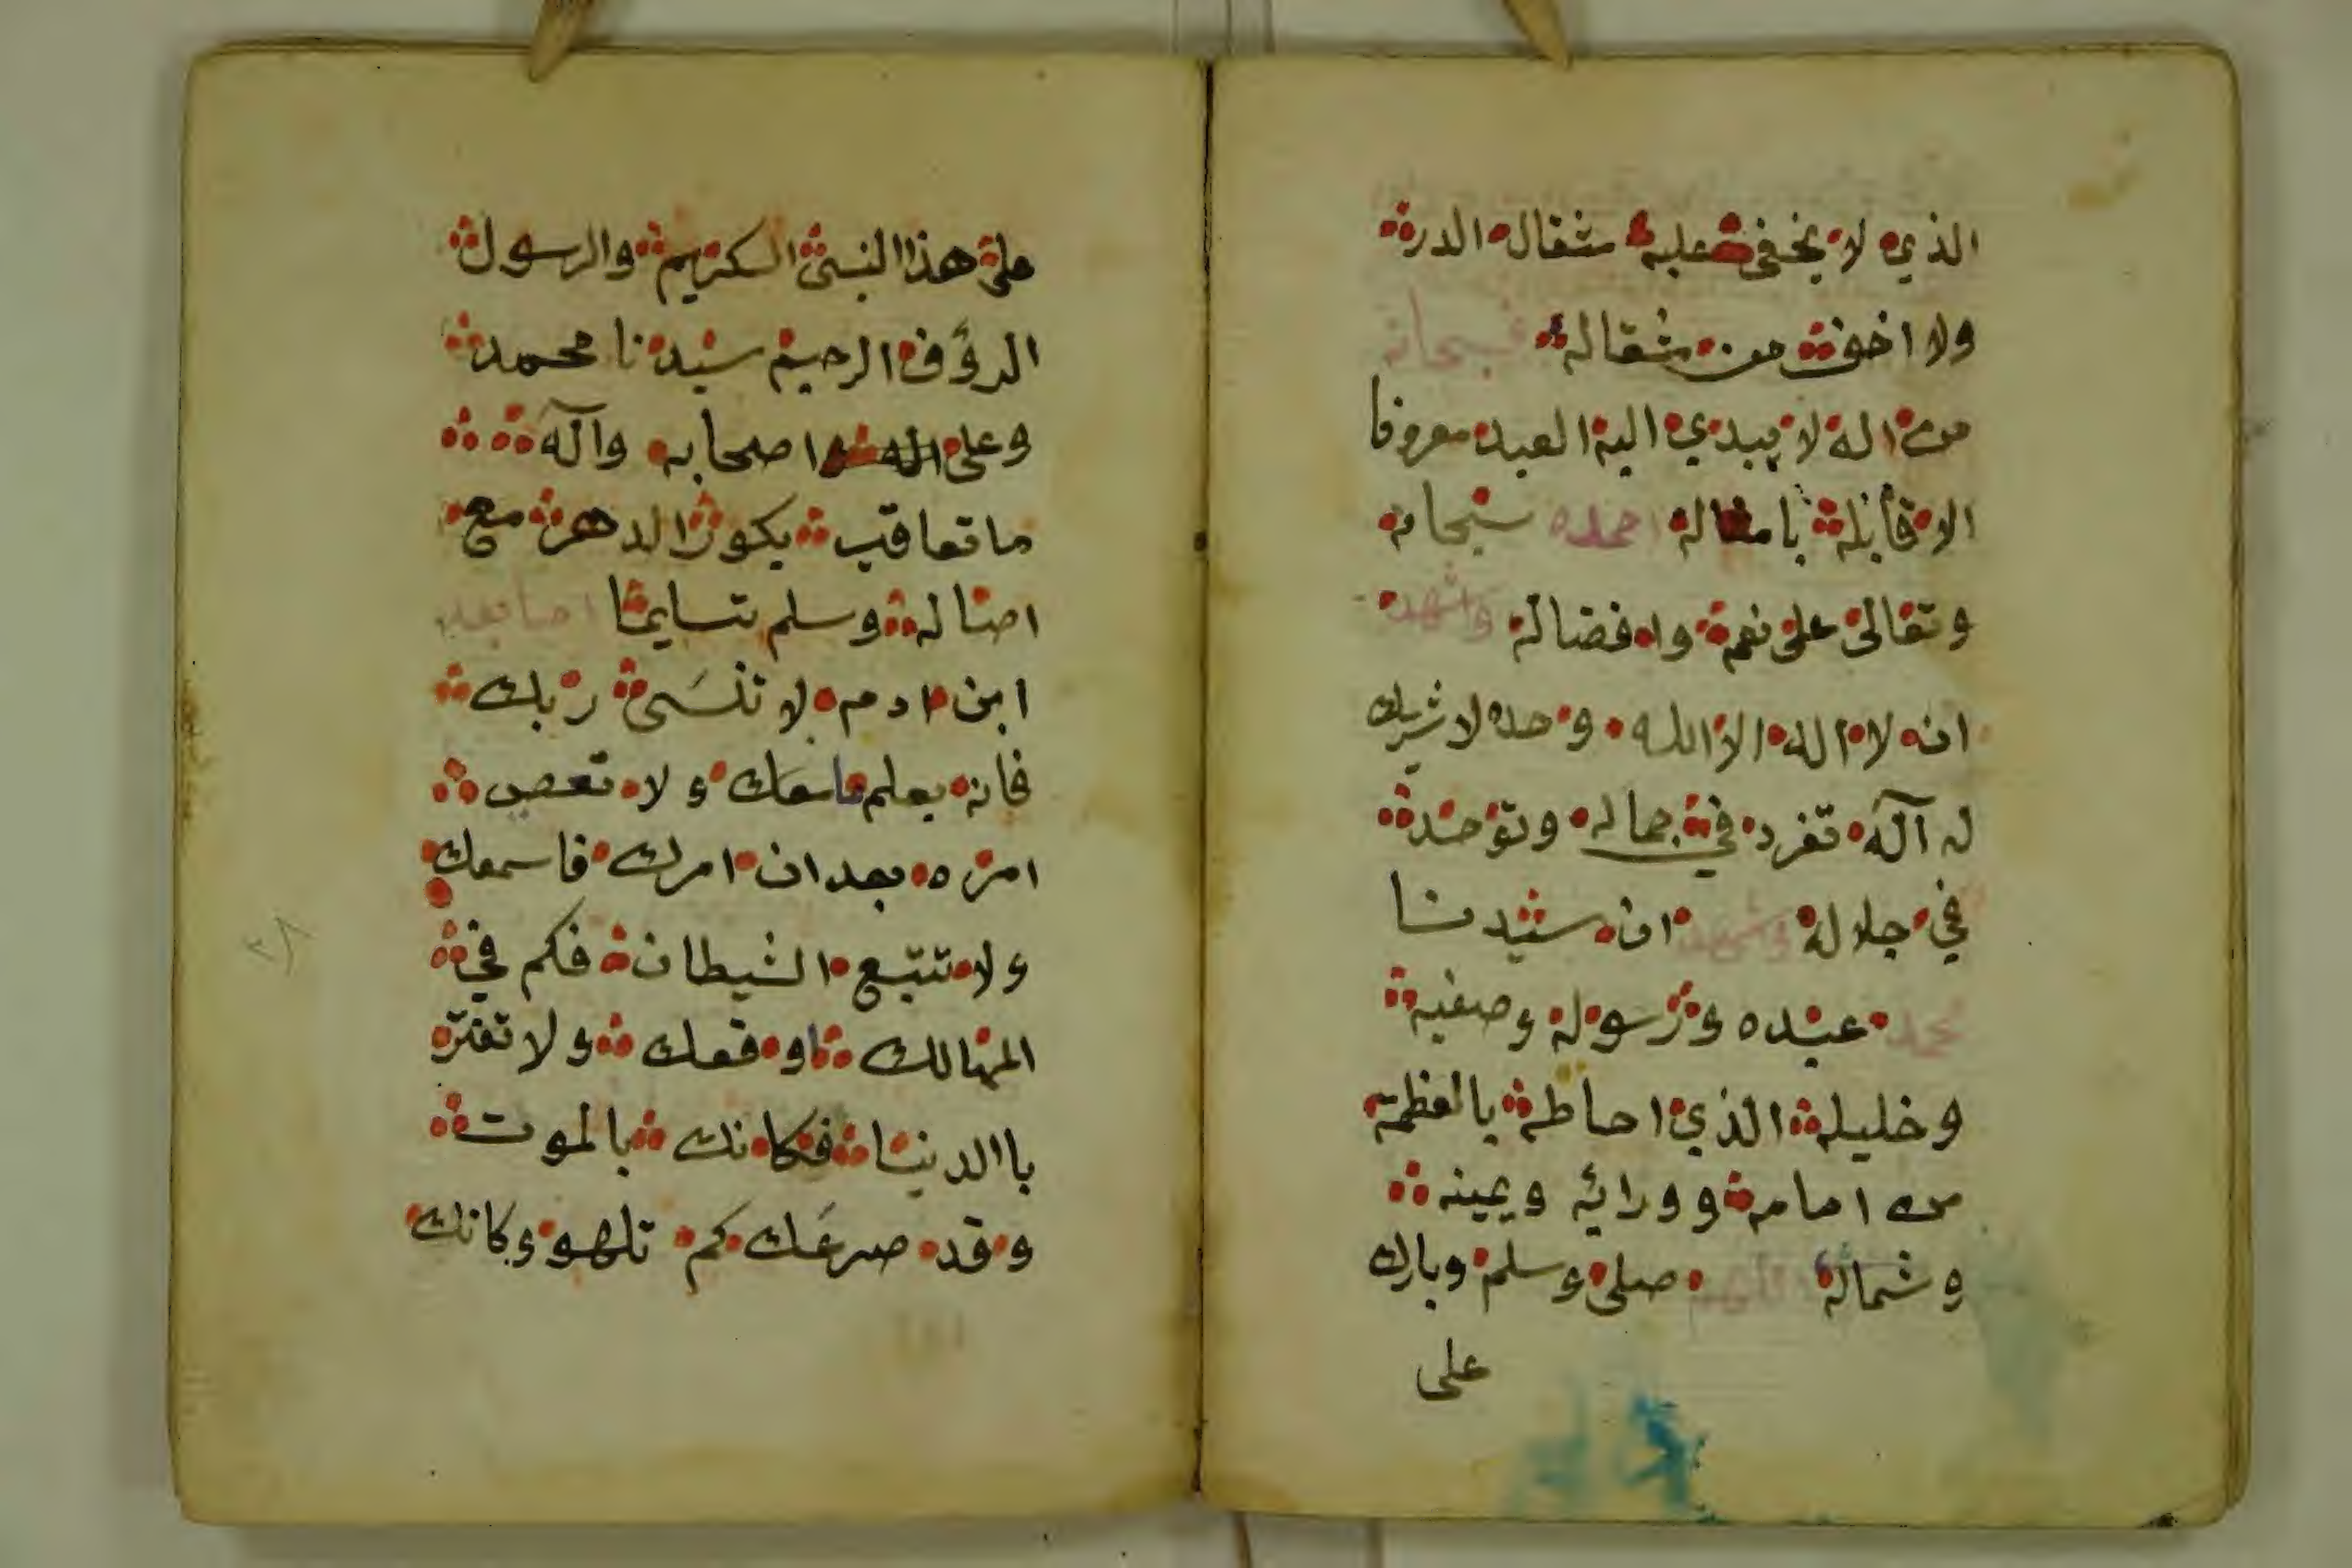 الذي لا يخفى عليه مثقال الدرة
ولا اخف من مثقاله فسبحانه
من اله لا يبدي اليه العبد معروفا
الا قابله بامثاله احمده سبحانه
وتعالى على نعمه وافضاله واشهد
ان لا اله الا الله وحده لا شريك
له آله تفرد في جماله وتوحد
في جلاله واشهد ان سيدنا
محمد عبده ورسوله وصفيه
وخليله الذي احاطه بالعظمة
من امامه وورائه ويمينه
وشماله اللهم صلى وسلم وبارك
على
على هذا النبى الكريم والرسول
الرؤف الرحيم سيدنا محمد
وعلى اصحابه وآله
ما تعاقب بكور الدهر مع
اصاله وسلم تسليما
ابن ادم لا تنسى ربك
فانه يعلم ما معك ولا تعص
امره بعد ان امرك فاسمعك
ولا تتبع الشيطان فكم في
المهالك اوقعك ولا تغتر
باالدنيا فكانك بالموت
وقد صرعك كم تلهو وكانك